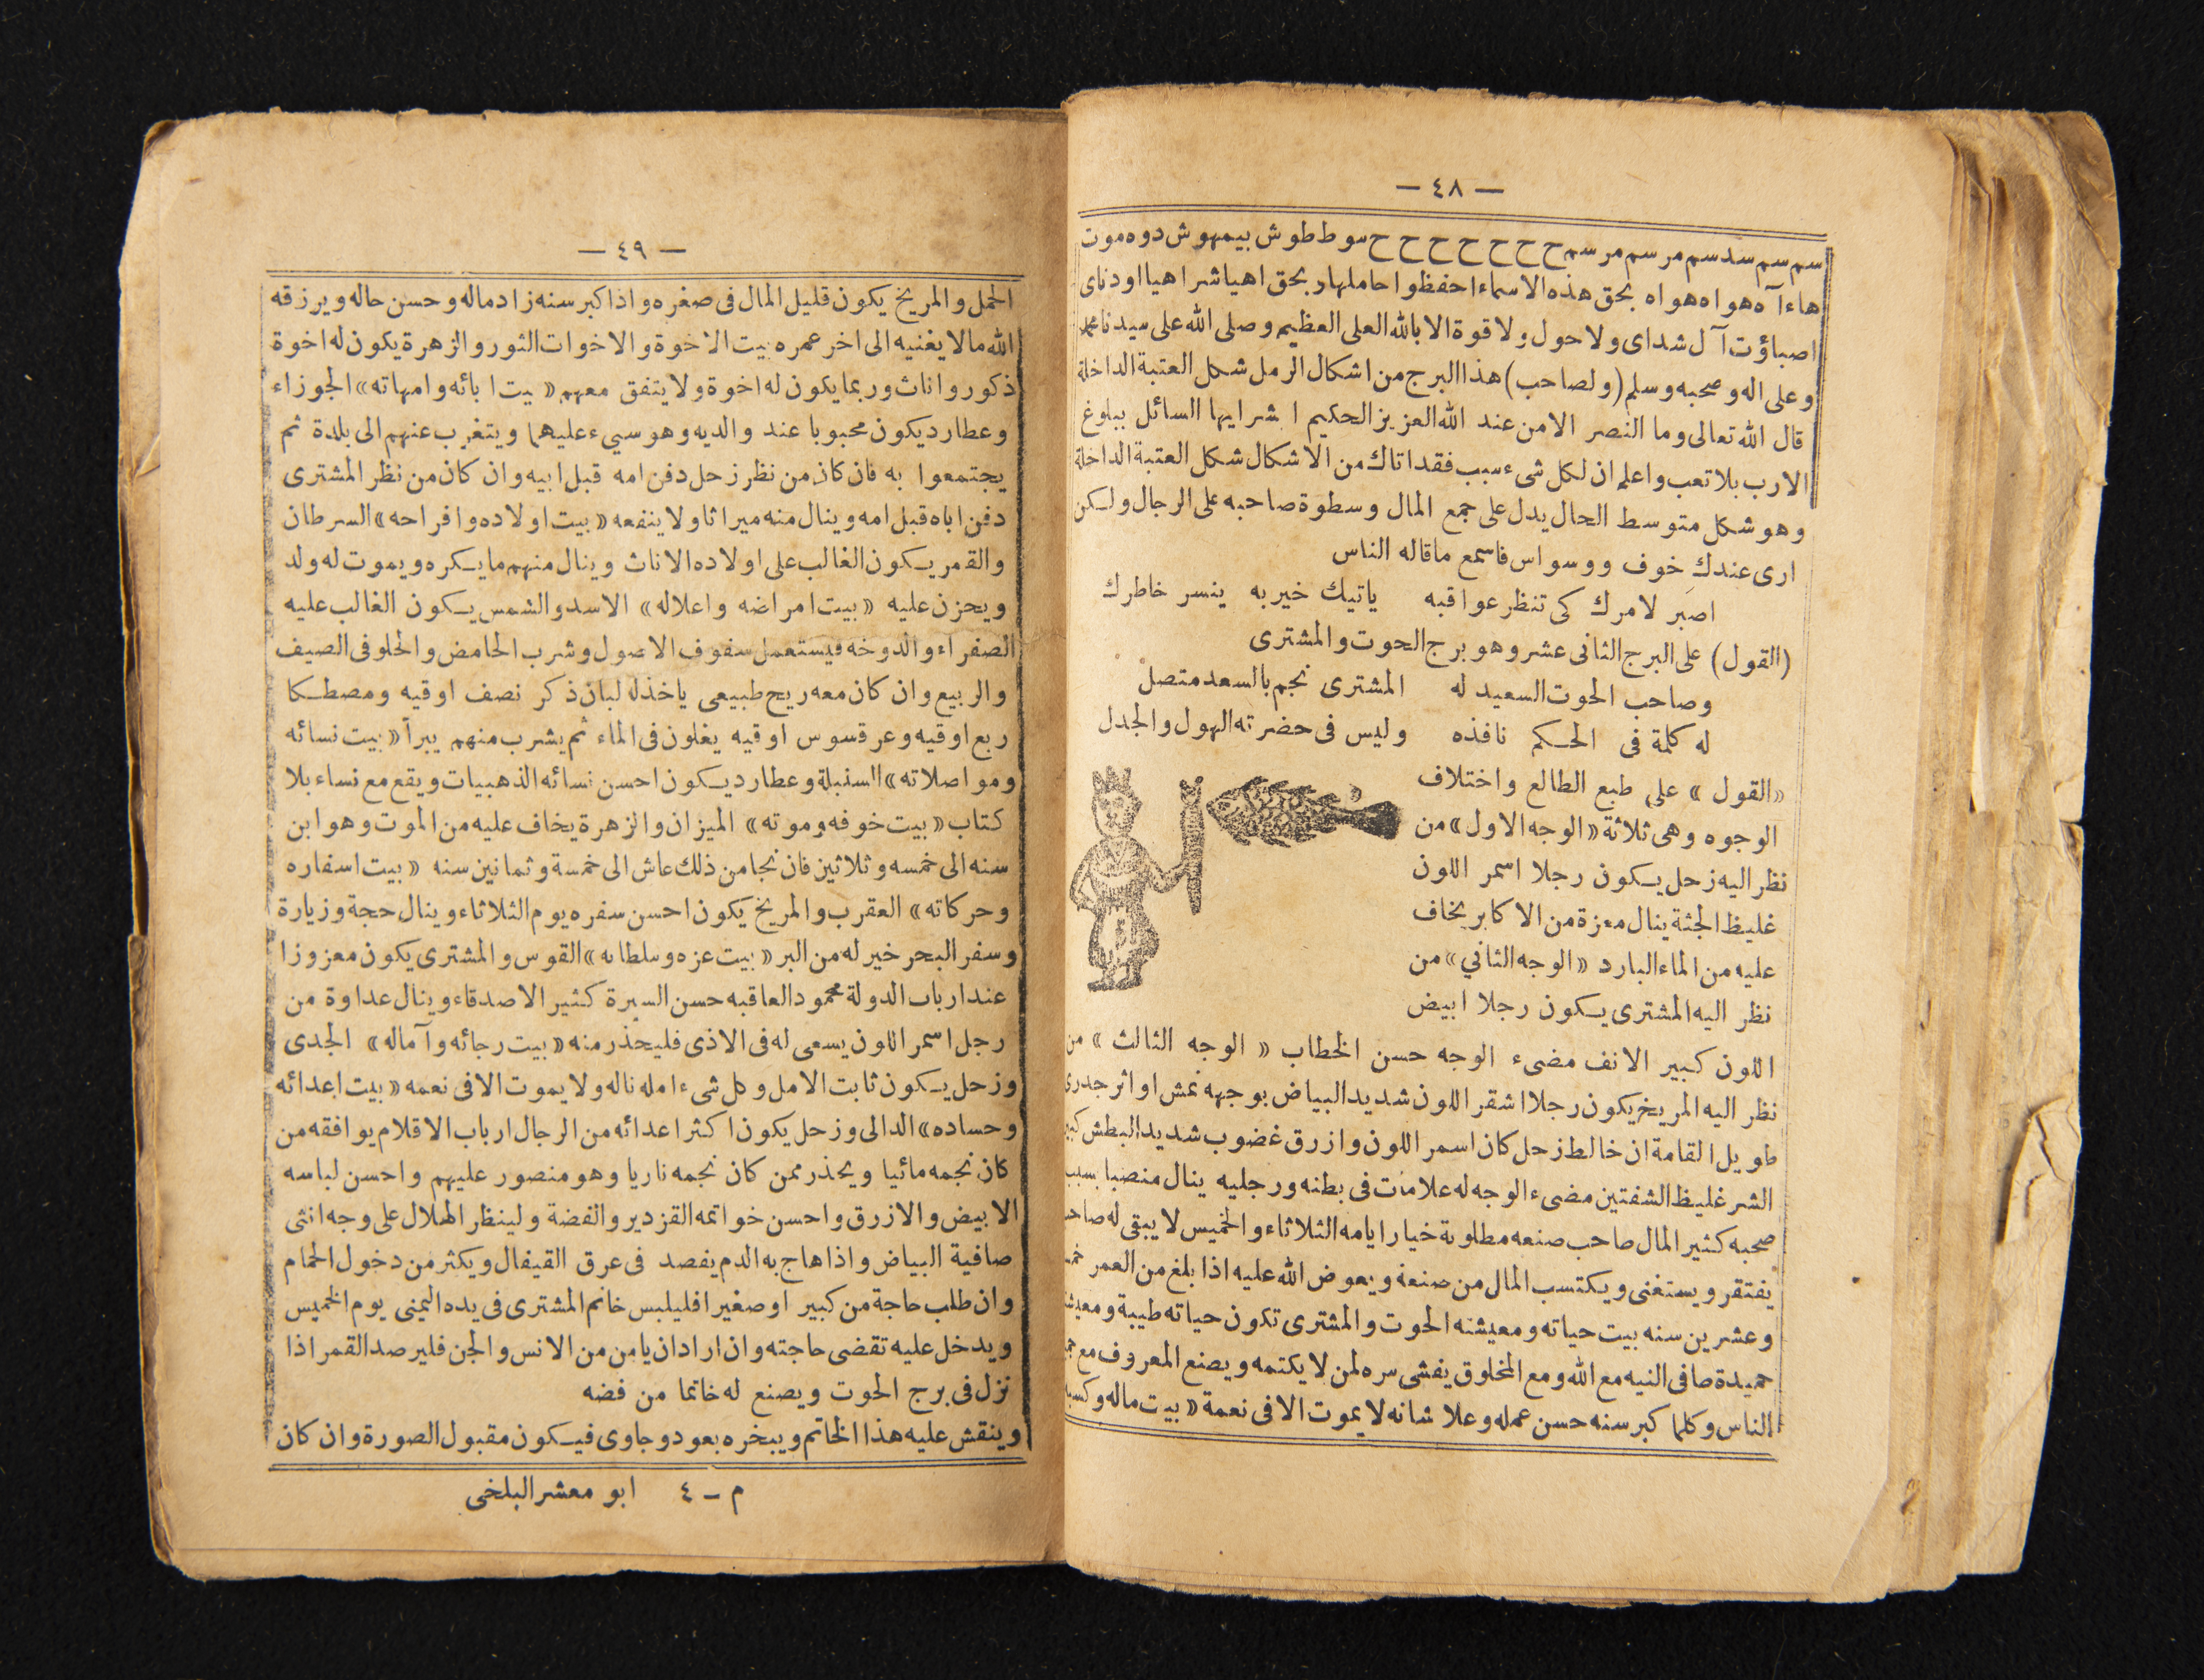 — ٤٨ —
سم سم سد سم مر سم مر سم ح ح ح ح ح ح ح سوط طوش بيمهوش دوه موت
هاء آه هواه هواه بحق هذه الاسماء احفظوا حاملها بحق اهيا شراهيا اودناى
اصباؤت آل شداى ولا حول ولا قوة الا بالله العلى العظيم وصلى الله على سيدنا محمد
وعلى اله وصحبه وسلم (ولصاحب) هذا البرج من اشكال الرمل شكل العتبة الداخلة
قال الله تعالى وما النصر الامن عند الله العزيز الحكيم ا شر ايها السائل ببلوغ
الارب بلا تعب واعلم ان لكل شىء سبب فقد اتاك من الاشكال شكل العتبة الداخلة
وهو شكل متوسط الحال يدل على جمع المال وسطوة صاحبه على الرجال ولكن
ارى عندك خوف ووسواس فاسمع ماقاله الناس
اصبر لامرك كى تنظر عواقبه ياتيك خير به ينسر خاطرك
(القول) على البرج الثانى عشر وهو برج الحوت والمشترى
وصاحب الحوت السعيد له المشترى نجم بالسعد متصل
له كلمة فى الحكم نافذه وليس فى حضرته الهول والجدل
«القول» على طبع الطالع واختلاف
الوجوه وهى ثلاثة «الوجه الاول» من
نظر اليه زحل يكون رجلا اسمر اللون
غليظ الجثة ينال معزة من الاكابر يخاف
عليه من الماء البارد «الوجه الثاني» من
نظر اليه المشترى يكون رجلا ابيض
اللون كبير الانف مضىء الوجه حسن الخطاب «الوجه الثالث» من
نظر اليه المريخ يكون رجلا اشقر اللون شديد البياض بوجهه نمش او اثر جدرى
طويل القامة ان خالط زحل كان اسمر اللون وازرق غضوب شديد البطش كبير
الشر غليظ الشفتين مضىء الوجه له علامات فى بطنه ورجليه ينال منصبا بسبب
صحبه كثير المال صاحب صنعه مطلوبة خيار ايامه الثلاثاء والخميس لا يبقى له صاحب
يفتقر ويستغنى ويكتسب المال من صنعة ويعوض الله عليه اذا بلغ من العمر خمسة
وعشرين سنه بيت حياته ومعيشته الحوت والمشترى تكون حياته طيبة ومعيشته
حميدة صافى النيه مع الله ومع المخلوق يفشى سره لمن لا يكتمه ويصنع المعروف مع جميع
الناس وكلما كبر سنه حسن عمله وعلا شانه لا يموت الا فى نعمة «بيت ماله وكسبه
— ٤٩ —
الحمل والمريخ يكون قليل المال فى صغره واذا كبر سنه زاد ماله وحسن حاله ويرزقه
الله مالا يغنيه الى اخر عمره بيت الاخوة والاخوات الثور والزهرة يكون له اخوة
ذكور واناث وربما يكون له اخوة ولا يتفق معهم «بيت ابائه وامهاته» الجوزاء
وعطارد يكون محبوبا عند والديه وهو سىء عليهما ويتغرب عنهم الى بلدة ثم
يجتمعوا به فان كان من نظر زحل دفن امه قبل ابيه وان كان من نظر المشترى
دفن اباه قبل امه وينال منه ميراثا ولا ينفعه «بيت اولاده وافراحه» السرطان
والقمر يكون الغالب على اولاده الاناث وينال منهم مايكره ويموت له ولد
ويحزن عليه «بيت امراضه واعلاله» الاسد والشمس يكون الغالب عليه
الصفراء والدوخه فيستعمل سفوف الاصول وشرب الحامض والحلو فى الصيف
والربيع وان كان معه ريح طبيعى ياخذله لبان ذكر نصف اوقيه ومصطكا
ربع اوقيه وعرقسوس اوقيه يغلون فى الماء ثم يشرب منهم يبرأ «بيت نسائه
ومواصلاته» السنبلة وعطارد يكون احسن نسائه الذهبيات ويقع مع نساء بلا
كتاب «بيت خوفه وموته» الميزان والزهرة يخاف عليه من الموت وهو ابن
سنه الى خمسه وثلاثين فان نجا من ذلك عاش الى خمسة وثمانين سنه «بيت اسفاره
وحركاته» العقرب والمريخ يكون احسن سفره يوم الثلاثاء وينال حجة وزيارة
وسفر البحر خير له من البر «بيت عزه وسلطانه» القوس والمشترى يكون معزوزا
عند ارباب الدولة محمود العاقبه حسن السيرة كثير الاصدقاء وينال عداوة من
رجل اسمر اللون يسعى له فى الاذى فليحذر منه «بيت رجائه وآماله» الجدى
وزحل يكون ثابت الامل وكل شىء امله ناله ولا يموت الا فى نعمه «بيت اعدائه
وحساده» الدالى وزحل يكون اكثر اعدائه من الرجال ارباب الاقلام يوافقه من
كان نجمه مائيا ويحذر ممن كان نجمه ناريا وهو منصور عليهم واحسن لباسه
الابيض والازرق واحسن خواتمه القزدير والفضة ولينظر الهلال على وجه انثى
صافية البياض واذا هاج به الدم يفصد فى عرق القيفال ويكثر من دخول الحمام
وان طلب حاجة من كبير اوصغير افليلبس خاتم المشترى فى يده اليمنى يوم الخميس
ويدخل عليه تقضى حاجته وان اراد ان يامن من الانس والجن فليرصد القمر اذا
نزل فى برج الحوت ويصنع له خاتما من فضه
وينقش عليه هذا الخاتم ويبخره بعود وجاوى فيكون مقبول الصورة وان كان
م - ٤ ابو معشر البلخى